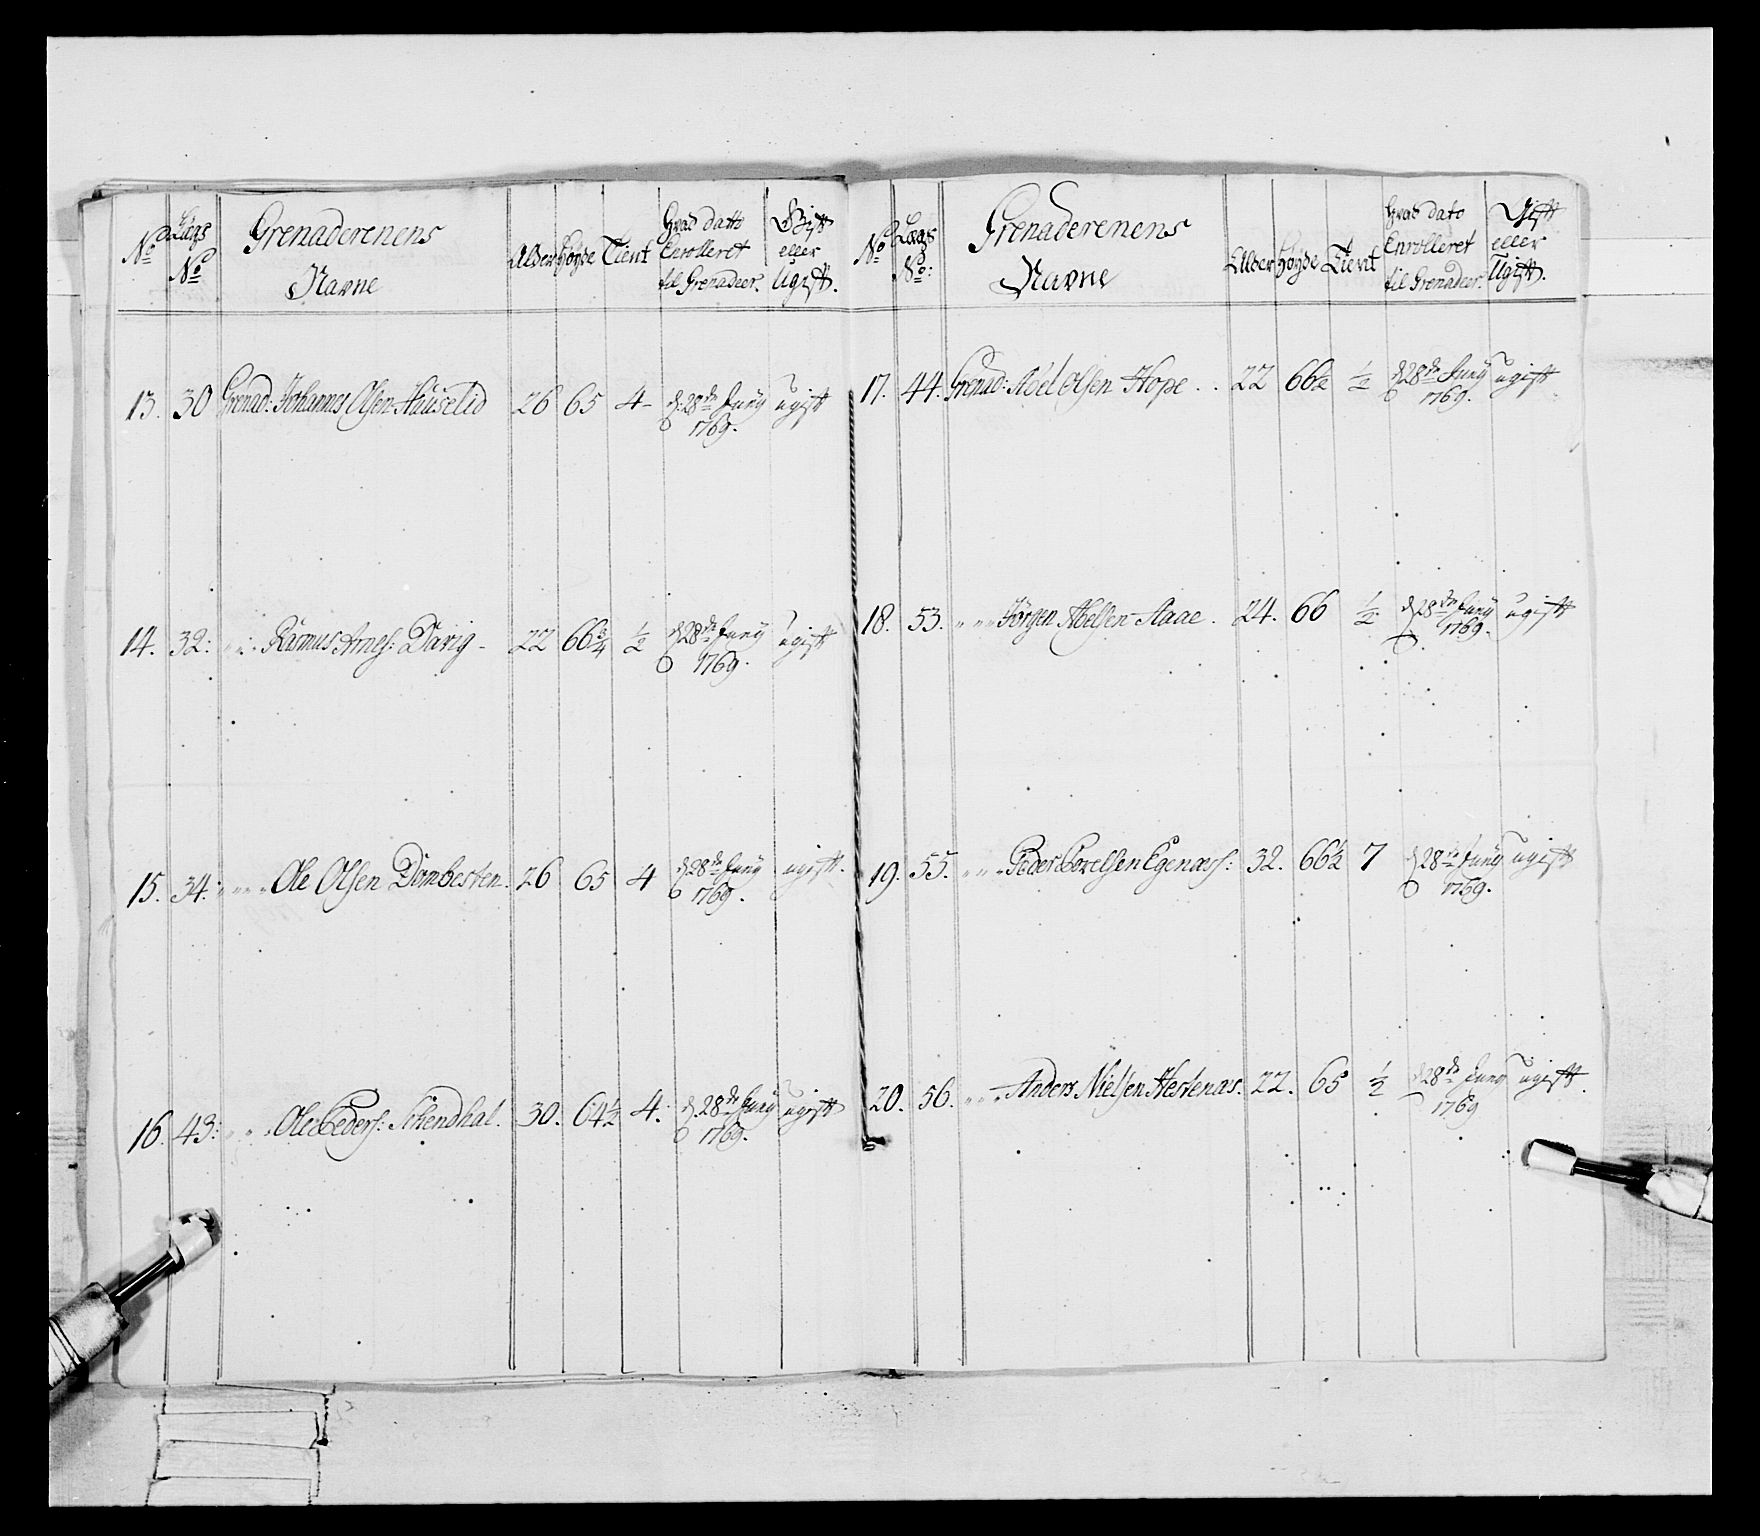 No Lægs No Grenaderenens Navne Alder Høyde Tient Hvad datto Enrolleret til Grenadeer. Gift eller Ugift.
13. 30 Grenad: Johannes Olsen Huuselid 26 65 4 - d: 28de Juny 1769. ugift
14. 32: " " Rasmus Arnes: Davig - 22 66¾ ½ d 28de Juny 1769. ugift
15. 34: " " " Ole Olsen Dombesten. 26 65 4 d 28de Juny 1769. ugift.
16. 43: " " Ole Peders: Schendhal. 30. 64½ 4. d. 28de Juny 1769. ugift
No Lægs No: Grenaderenens Navne Alder Høyde Tient Hvad dato Enrolleret til Grenadeer. Gift eller Ugift.
17. 44. Grenad: Abel Olsen Hope . . 22 66½ ½ d 28de Juny 1769. ugift
18. 53. " " " Jørgen Abelsen Aaae. 24. 66 ½ d 28de Juny 1769. ugift
19. 55. " " " Peder Povelsen Egenæss: 32. 66½ 7 d 28de Juny 1769. ugift
20. 56. " " " Anders Nielsen Hestenæs. 22. 65 ½ d 28de Juny 1769 ugift.